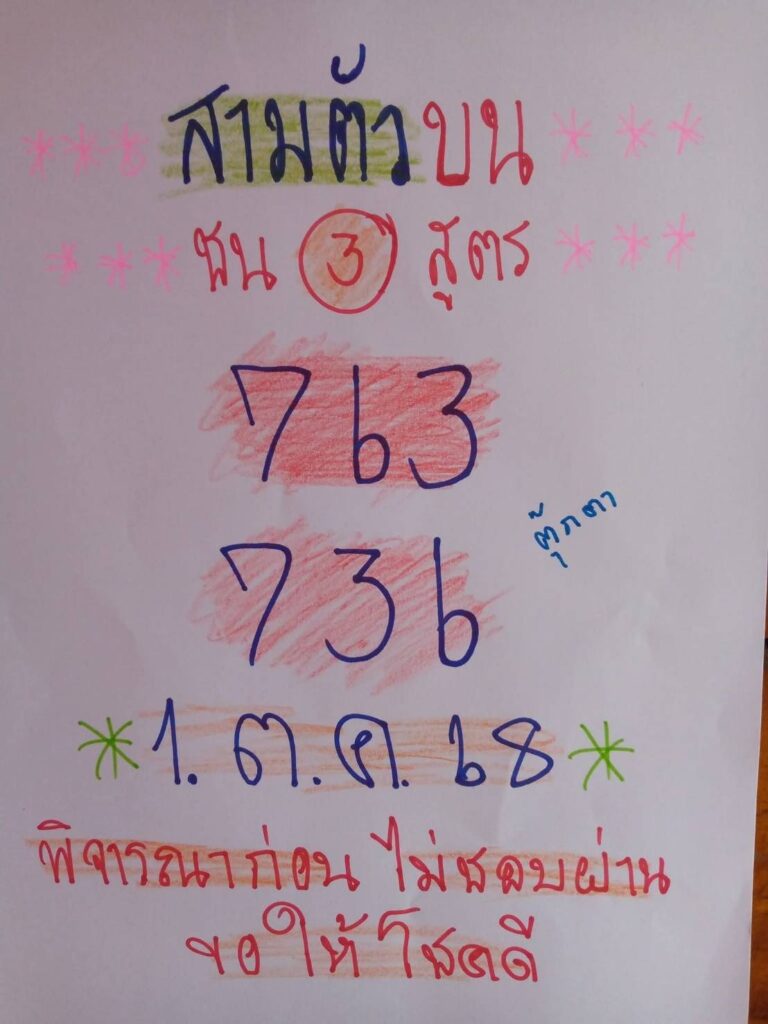 *** สามตัวบน ***
*** ชน 3 สูตร ***
763
736
ตุ๊กตา
* 1. ต.ค. 68 *
พิจารณาก่อน ไม่ชอบผ่าน
ขอให้โชคดี